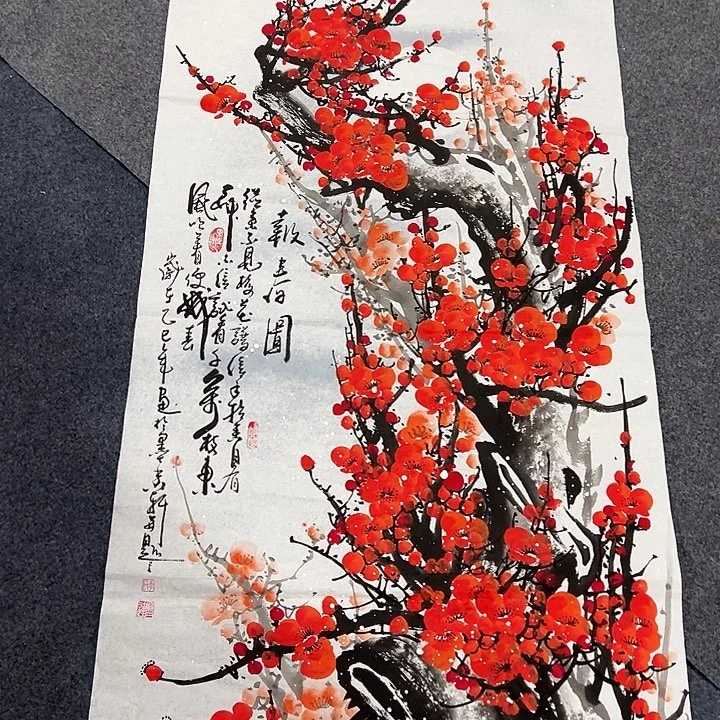 報春圖
從來不見梅花譜信手拈來自有
神不信試看千萬樹東
風吹着便成春
歲在乙巳年畫於墨軒題